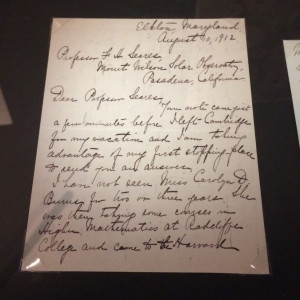 Elkton, Maryland,
August 30, 1912
Professor F. H. Seares,
Mount Wilson Solar Observatory,
Pasadena, California
Dear Professor Seares,
Your note came just
a few minutes before I left Cambridge
for my vacation and I am taking
advantage of my first stopping place
to send you an answer.
I have not seen Miss Carolyn
Burns for two or three years. She
was then taking some courses in
Higher Mathematics at Radcliffe
College and came to the Harvard